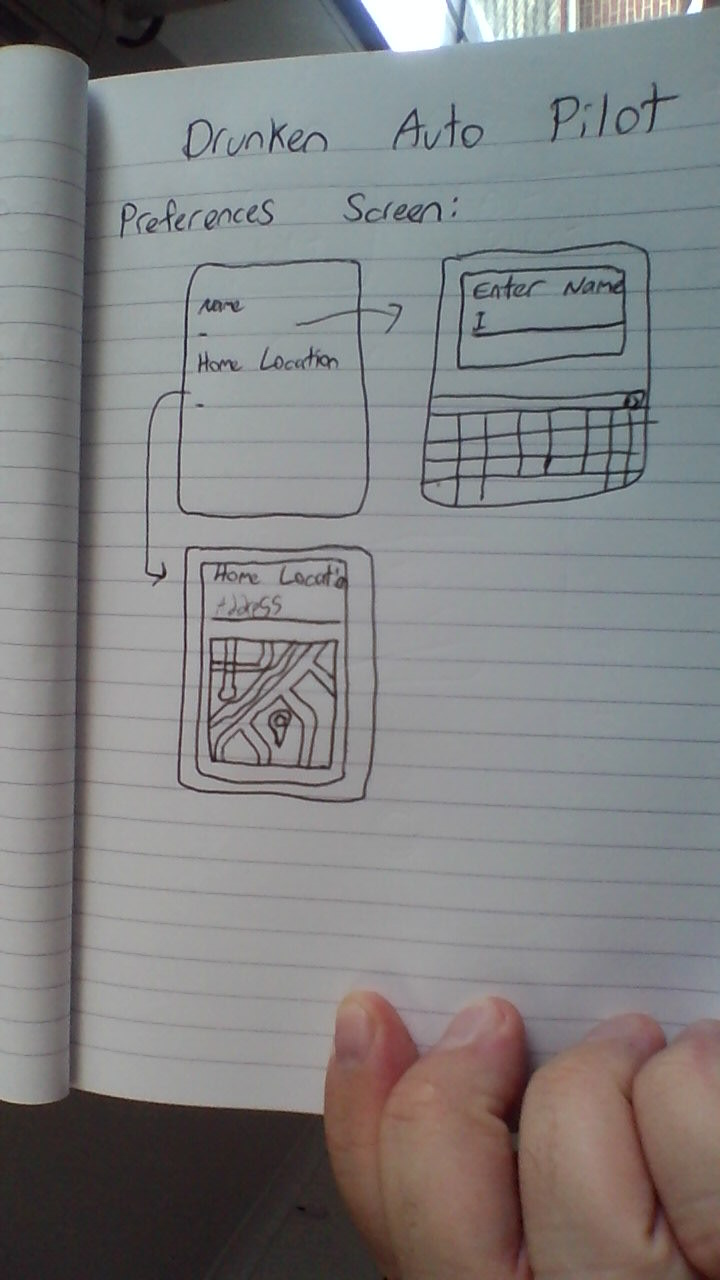 Drunken Auto Pilot
Preferences Screen:
Name
-
Home Location
-
Enter Name
I
Home Locatio
Address